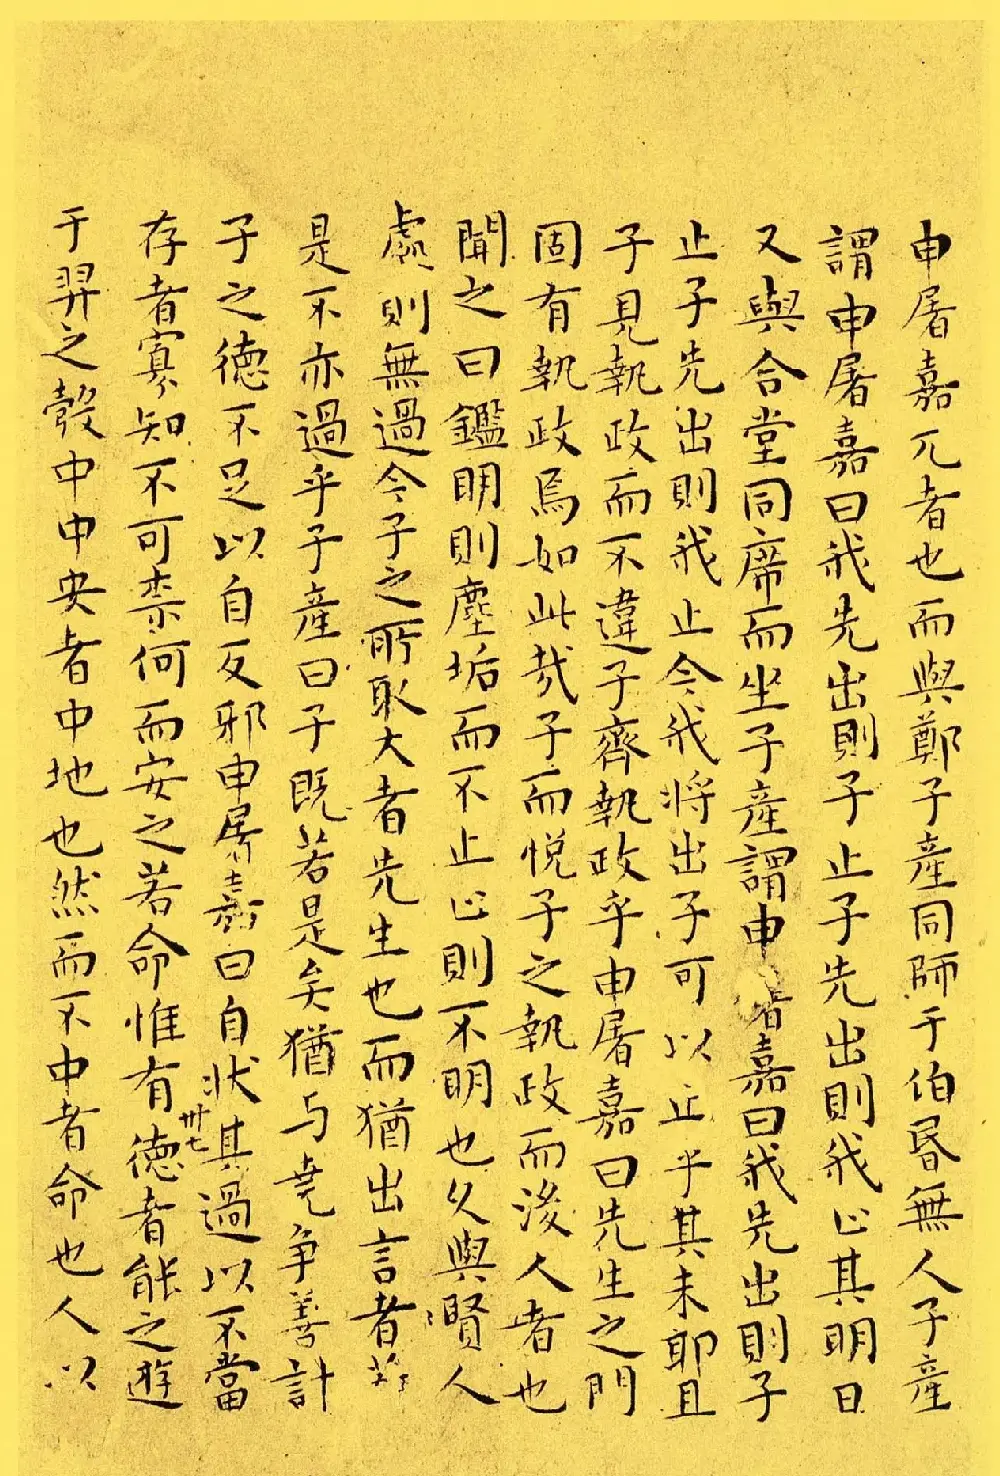 申屠嘉兀者也而與鄭子產同師于伯昬無人子產
謂申屠嘉曰我先出則子止子先出則我止其明日
又與合堂同席而坐子產謂申屠嘉曰我先出則子
止子先出則我止今我将出子可以止乎其未耶且
子見執政而不違子齊執政乎申屠嘉曰先生之門
固有執政焉如此哉子而悦子之執政而後人者也
聞之曰鑑明則塵垢而不止止則不明也久與賢人
處則無過今子之所取大者先生也而猶出言者若
是不亦過乎子產曰子既若是矣猶与尭争善計
子之德不足以自反邪申屠嘉曰自狀其過以不當
存者寡知不可柰何而安之若命惟有德者能之遊
卅七
于羿之彀中中央者中地也然而不中者命也人以